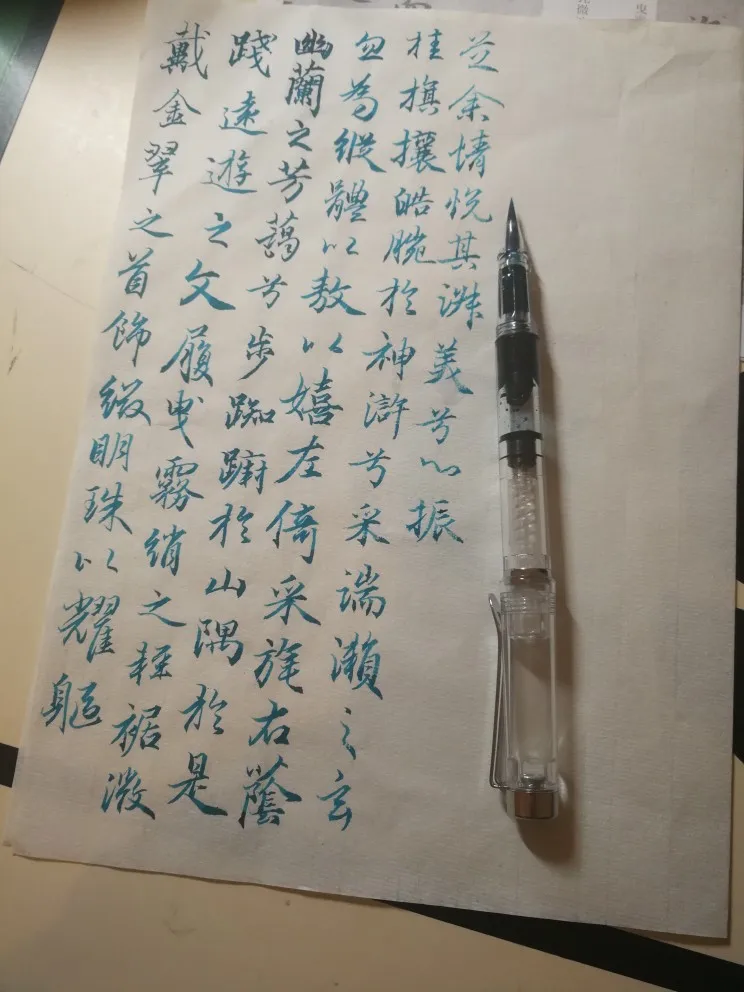 戴金翠之首飾綴明珠以耀軀
踐遠遊之文履曳霧綃之輕裾微
幽蘭之芳藹兮步踟躕於山隅於是
忽為縱體以敖以嬉左倚采旄右蔭
桂旗攘皓腕於神滸兮采湍瀨之玄
芝余情悅其淑美兮心振